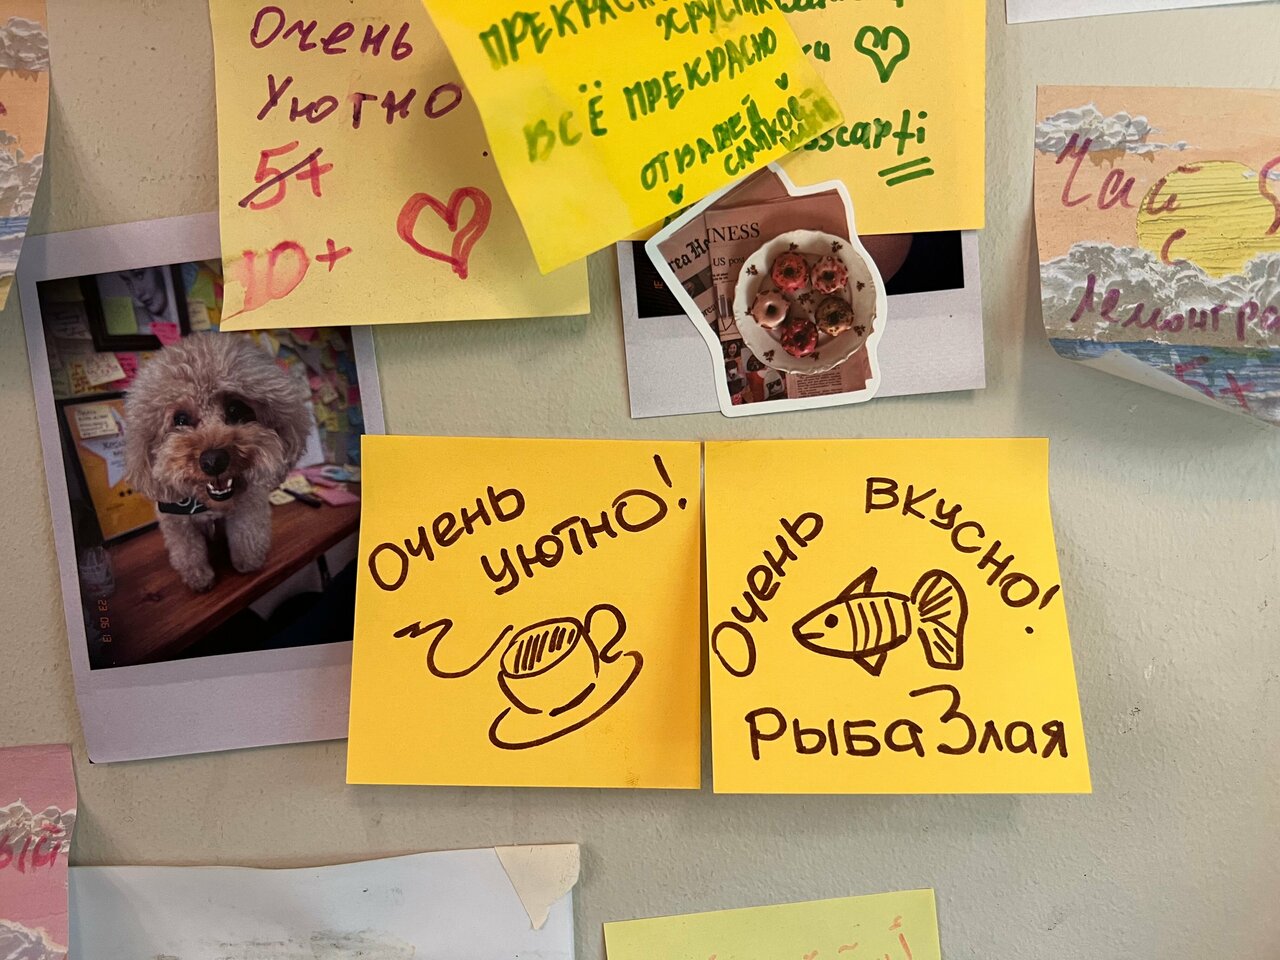 Очень
Уютно
5+
10+
ПРЕКРАСНО
ХРУСТИК
ВСЁ ПРЕКРАСНО
ОТ ВАШЕЙ
sscapti
INESS
US
Чай
с
Лемонгра
5+
Очень
уютно!
Очень вкусно!
Рыба Злая
ый